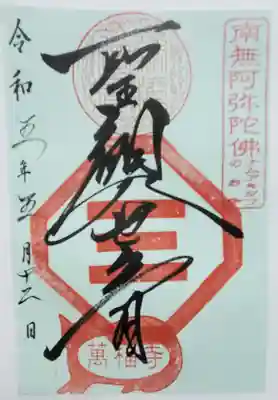 南無阿弥陀佛
聖観世音
令和五年五月十二日
萬福寺